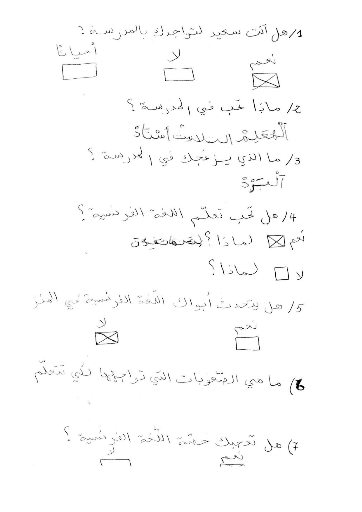 1/ هل أنت سعيد لتواجدك بالمدرسة ؟
نعم لا أحيانا
2/ ماذا تحب في المدرسة ؟
3/ ما الذي يزعجك في المدرسة ؟
4/ هل تحب تعلّم اللغة الفرنسية ؟
نعم لماذا ؟
لا لماذا ؟
5/ هل يتحدث أبواك اللّغة الفرنسية في المنزل
نعم لا
6) ما هي الصّعوبات التي تواجهها لكي تتعلّم
7) هل تعجبك حصّة اللّغة الفرنسية ؟
نعم لا